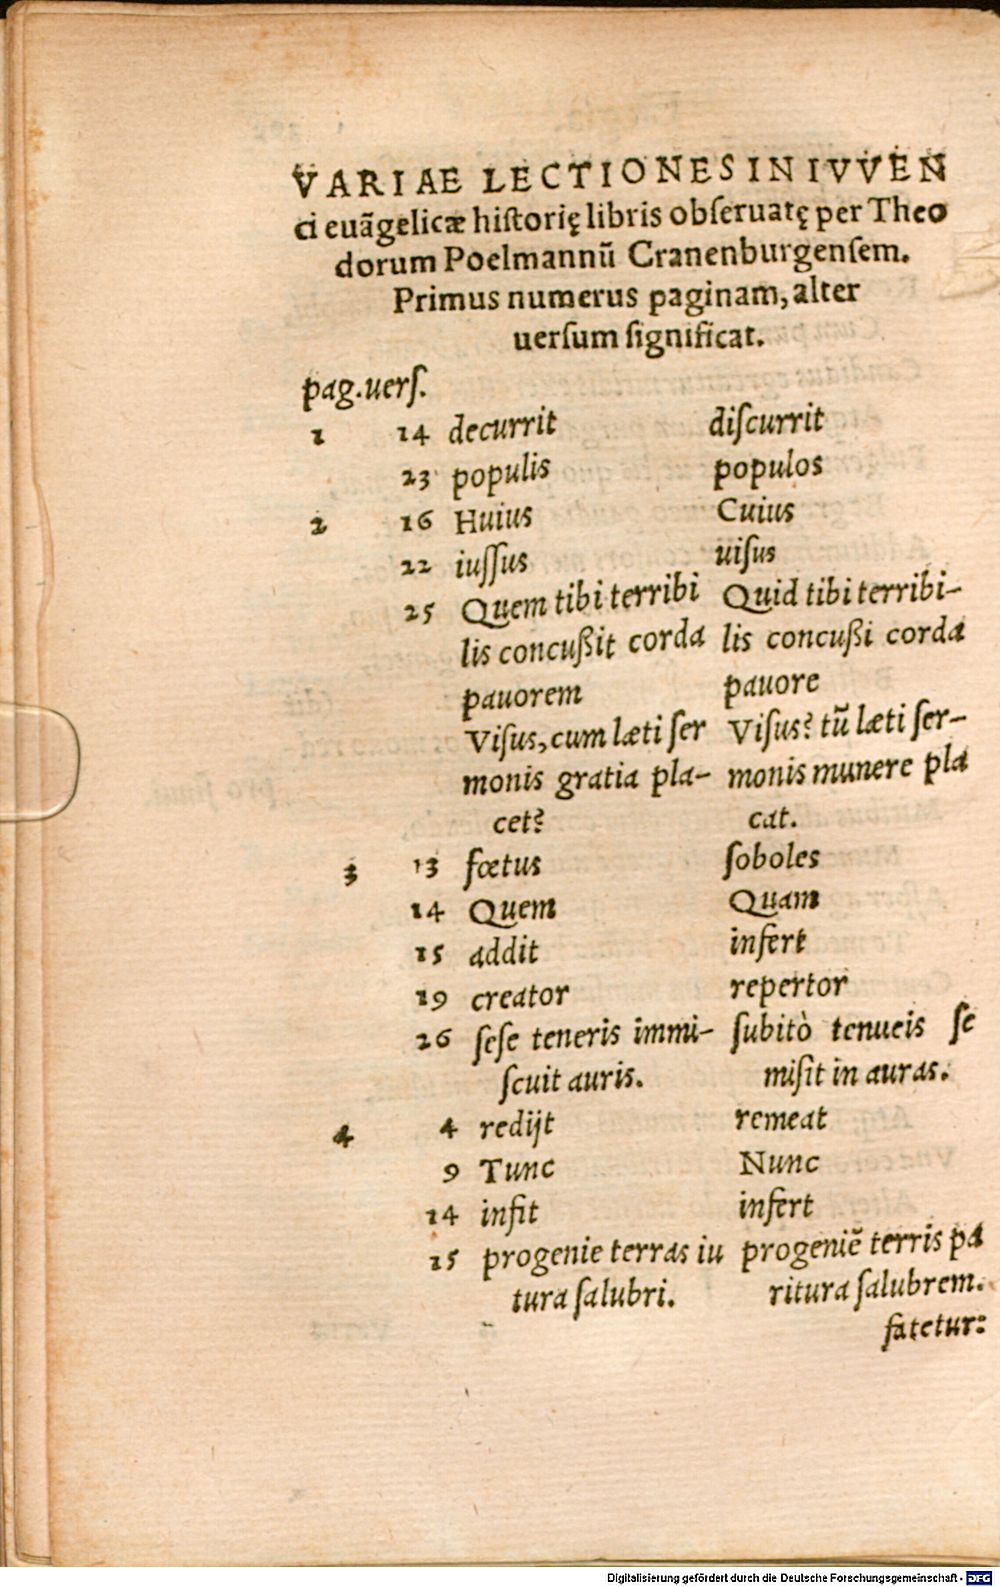 VARIAE LECTIONES IN IVVEN
ci euãgelicæ historię libris obseruatę per Theo
dorum Poelmannũ Cranenburgensem.
Primus numerus paginam, alter
uersum significat.
pag. uers.
1 14 decurrit discurrit
23 populis populos
2 16 Huius Cuius
22 iussus uisus
25 Quem tibi terribi Quid tibi terribi-
lis concußit corda lis concußi corda
pauorem pauore
Visus, cum læti ser Visus? tũ læti ser-
monis gratia pla- monis munere pla
cet? cat.
3 13 fœtus soboles
14 Quem Quam
15 addit infert
19 creator repertor
26 sese teneris immi- subitò tenueis se
scuit auris. misit in auras.
4 4 redijt remeat
9 Tunc Nunc
14 infit infert
15 progenie terras iu progeniẽ terris pa
tura salubri. ritura salubrem.
fatetur:
Digitalisierung gefördert durch die Deutsche Forschungsgemeinschaft - DFG